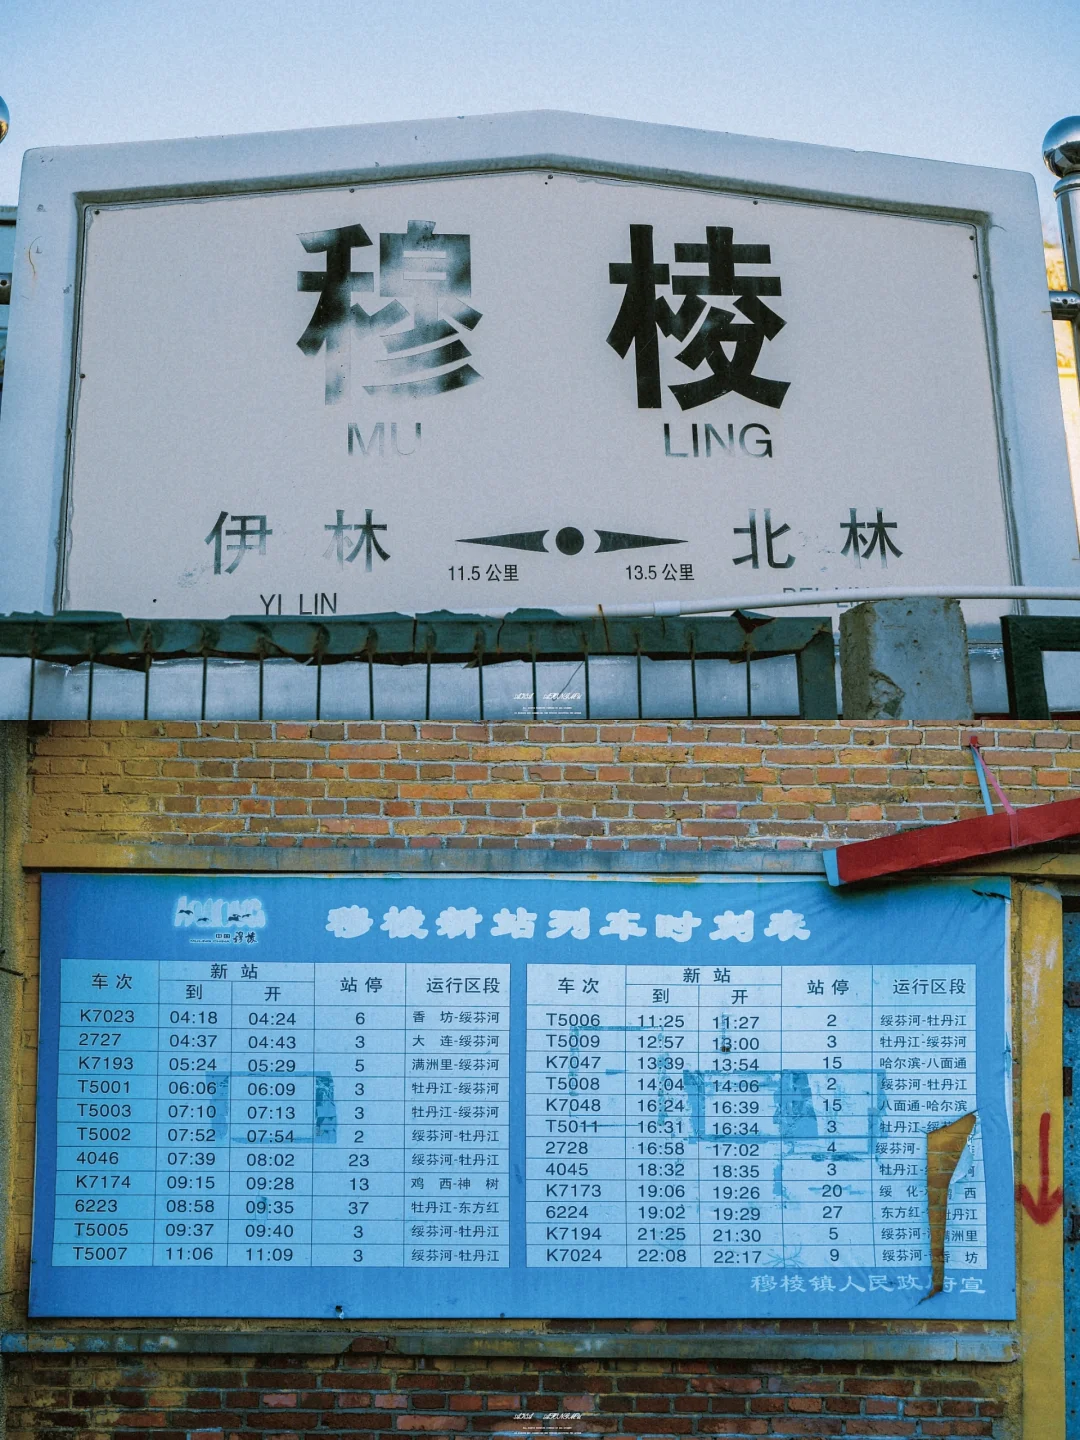 穆 棱
MU LING
伊 林 北 林
11.5 公里 13.5 公里
YI LIN
中国 穆棱
穆棱新站列车时刻表
车次 新站 站停 运行区段
到 开
K7023 04:18 04:24 6 香 坊-绥芬河
2727 04:37 04:43 3 大 连-绥芬河
K7193 05:24 05:29 5 满洲里-绥芬河
T5001 06:06 06:09 3 牡丹江-绥芬河
T5003 07:10 07:13 3 牡丹江-绥芬河
T5002 07:52 07:54 2 绥芬河-牡丹江
4046 07:39 08:02 23 绥芬河-牡丹江
K7174 09:15 09:28 13 鸡 西-神 树
6223 08:58 09:35 37 牡丹江-东方红
T5005 09:37 09:40 3 绥芬河-牡丹江
T5007 11:06 11:09 3 绥芬河-牡丹江
车次 新站 站停 运行区段
到 开
T5006 11:25 11:27 2 绥芬河-牡丹江
T5009 12:57 13:00 3 牡丹江-绥芬河
K7047 13:39 13:54 15 哈尔滨-八面通
T5008 14:04 14:06 2 绥芬河-牡丹江
K7048 16:24 16:39 15 八面通-哈尔滨
T5011 16:31 16:34 3 牡丹江-绥
2728 16:58 17:02 4 绥芬河-
4045 18:32 18:35 3 牡丹江- 河
K7173 19:06 19:26 20 绥 化- 西
6224 19:02 19:29 27 东方红-牡丹江
K7194 21:25 21:30 5 绥芬河-满洲里
K7024 22:08 22:17 9 绥芬河-香 坊
穆棱镇人民政府宣